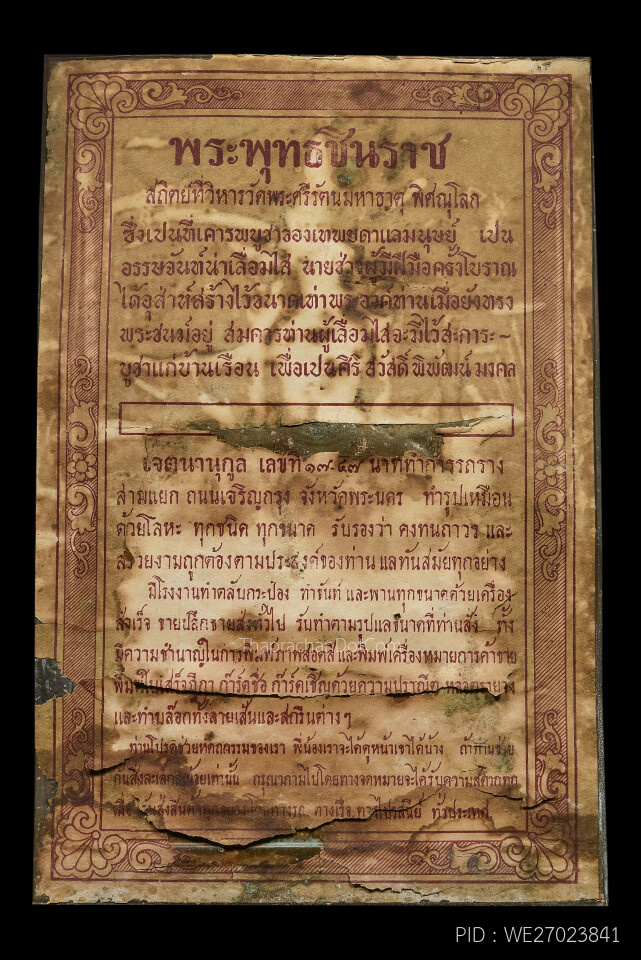 พระพุทธชินราช
สถิตย์ที่วิหารวัดพระศรีรัตนมหาธาตุ พิศณุโลก
ซึ่งเปนที่เคารพบูชาของเทพยดาแลมนุษย์ เปน
อรรษจันท์น่าเลื่อมใส นายช่างผู้มีฝีมือครั้งโบราณ
ได้อุสาห์สร้างไว้ขนาดเท่าพระองค์ท่านเมื่อยังทรง
พระชนม์อยู่ สมควรท่านผู้เลื่อมใสจะมีไว้สะการะ~
บูชาแก่บ้านเรือน เพื่อเปนศิริ สวัสดิ์ พิพัฒน์ มงคล
เจตนานุกูล เลขที่ ๑๗-๕๗ นาททำการรถราง
สามแยก ถนนเจริญกรุง จังหวัดพระนคร ทำรูปเหมือน
ด้วยโลหะ ทุกชนิด ทุกขนาด รับรองว่า คงทนถาวร และ
สวยงามถูกต้องตามประสงค์ของท่าน แลทันสมัยทุกอย่าง
มีโรงงานทำตลับกระป๋อง ทำขันท์ และพานทุกขนาดด้วยเครื่อง
สำเร็จ ขายปลีกขายส่งทั่วไป รับทำตามรูปแลขนาดที่ท่านสั่ง ทั้ง
มีความชำนาญในการพิมพ์ภาพสอดสี และพิมพ์เครื่องหมายการค้าขาย
พิมพ์ใบเสร็จฎีกา ก๊าร์ดชื่อ ก๊าร์ดเชิญด้วยความปราณีต
และทำบล๊อกทั้งลายเส้นและสกรีนต่าง ๆ
ท่านโปรดช่วยหัตถกรรมของเรา พี่น้องเราจะได้ดูหน้าเขาได้บ้าง ถ้าท่านช่วย
กันสิ่งละเล็กละน้อยเท่านั้น กรุณาถามไปโดยทางจดหมายจะได้รับความสดวกทุก
ทางรถ ทางเรือ ทางไปรสนีย์ ทั่วประเทศ
ThaprachanDotCom
PID : WE27023841